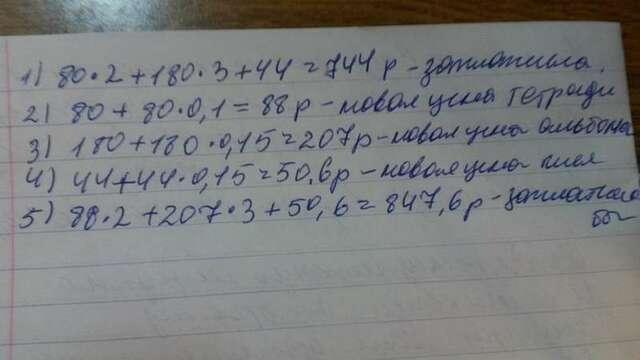 1) 80·2+180·3+44=744р - заплатила.
2) 80+80·0,1=88р - новая цена тетради
3) 180+180·0,15=207р - новая цена альбома
4) 44+44·0,15=50,6р - новая цена клея
5) 88·2+207·3+50,6=847,6р - заплатила
бы